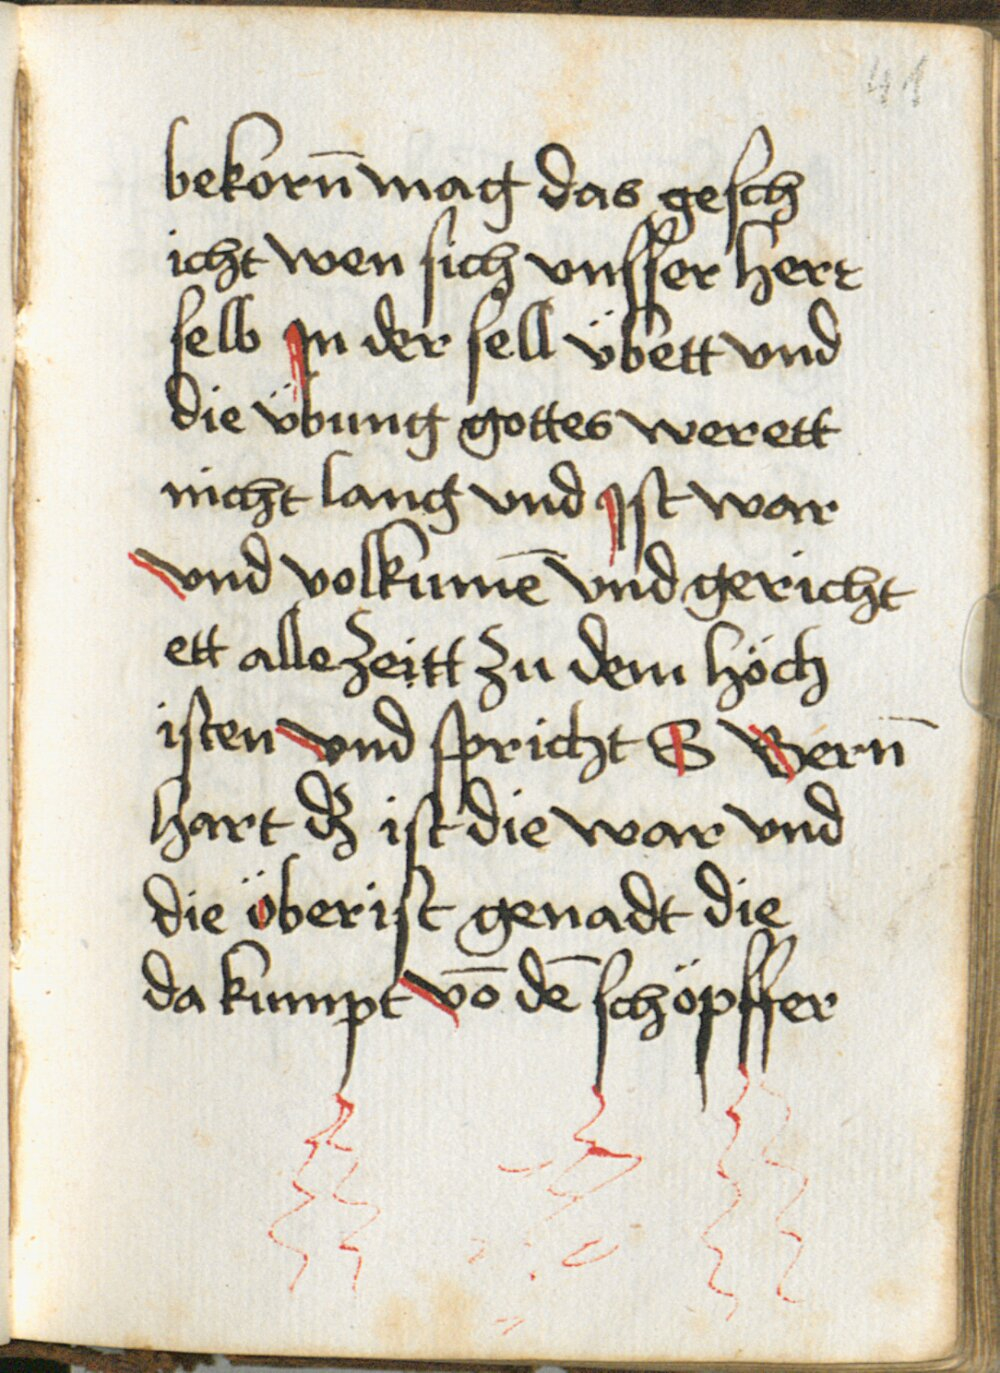 41
bekorn̄ mag das gesch
icht wen sich vnsser herr
selb In der sell v̈bett vnd
die v̈bung gottes werett
nicht lang vnd Ist war
vnd volkumē vnd gericht
ett alle zeitt zu dem höch
isten vnd spricht S Bern̄
hart dz ist die war vnd
die öberist genadt die
da kumpt vō dē schöpffer